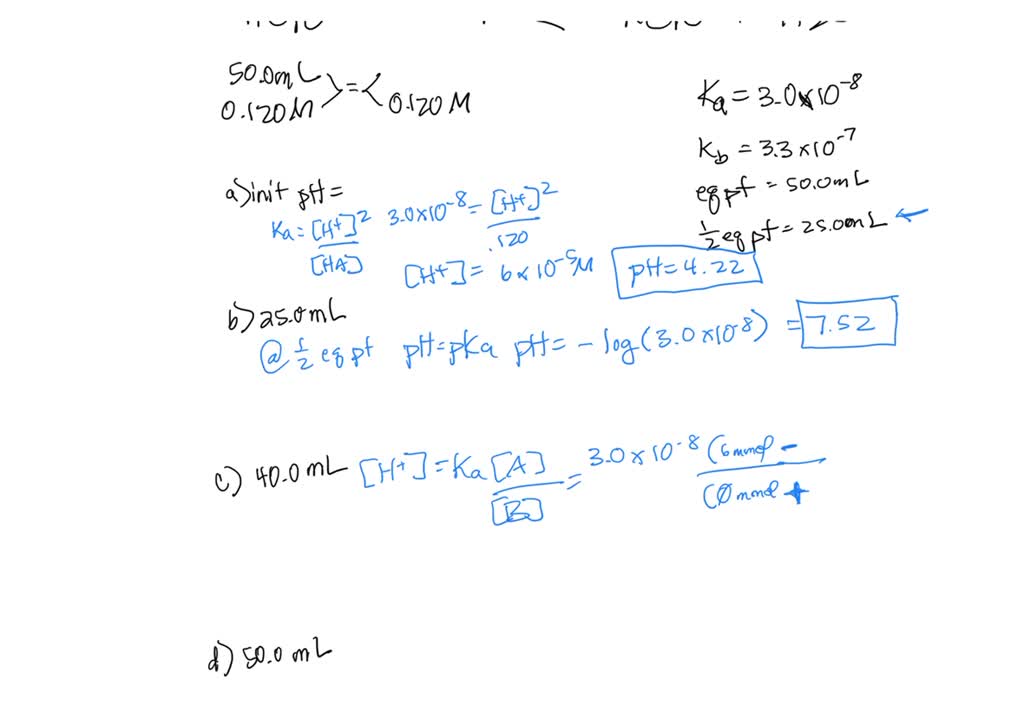 50.0mL
0.120M > = < 0.120 M
Ka = 3.0×10⁻⁸
Kb = 3.3×10⁻⁷
eq pt = 50.0mL
½ eq pt = 25.00mL ←
a) init pH =
Ka = [H⁺]² / [HA] 3.0×10⁻⁸ = [H⁺]² / .120
[H⁺] = 6×10⁻⁵M pH = 4.22
b) 25.0mL
@ ½ eq pt pH = pKa pH = - log(3.0×10⁻⁸) = 7.52
c) 40.0 mL [H⁺] = Ka [A] / [B] = 3.0×10⁻⁸ (6 mmol - / (0 mmol +
d) 50.0 mL